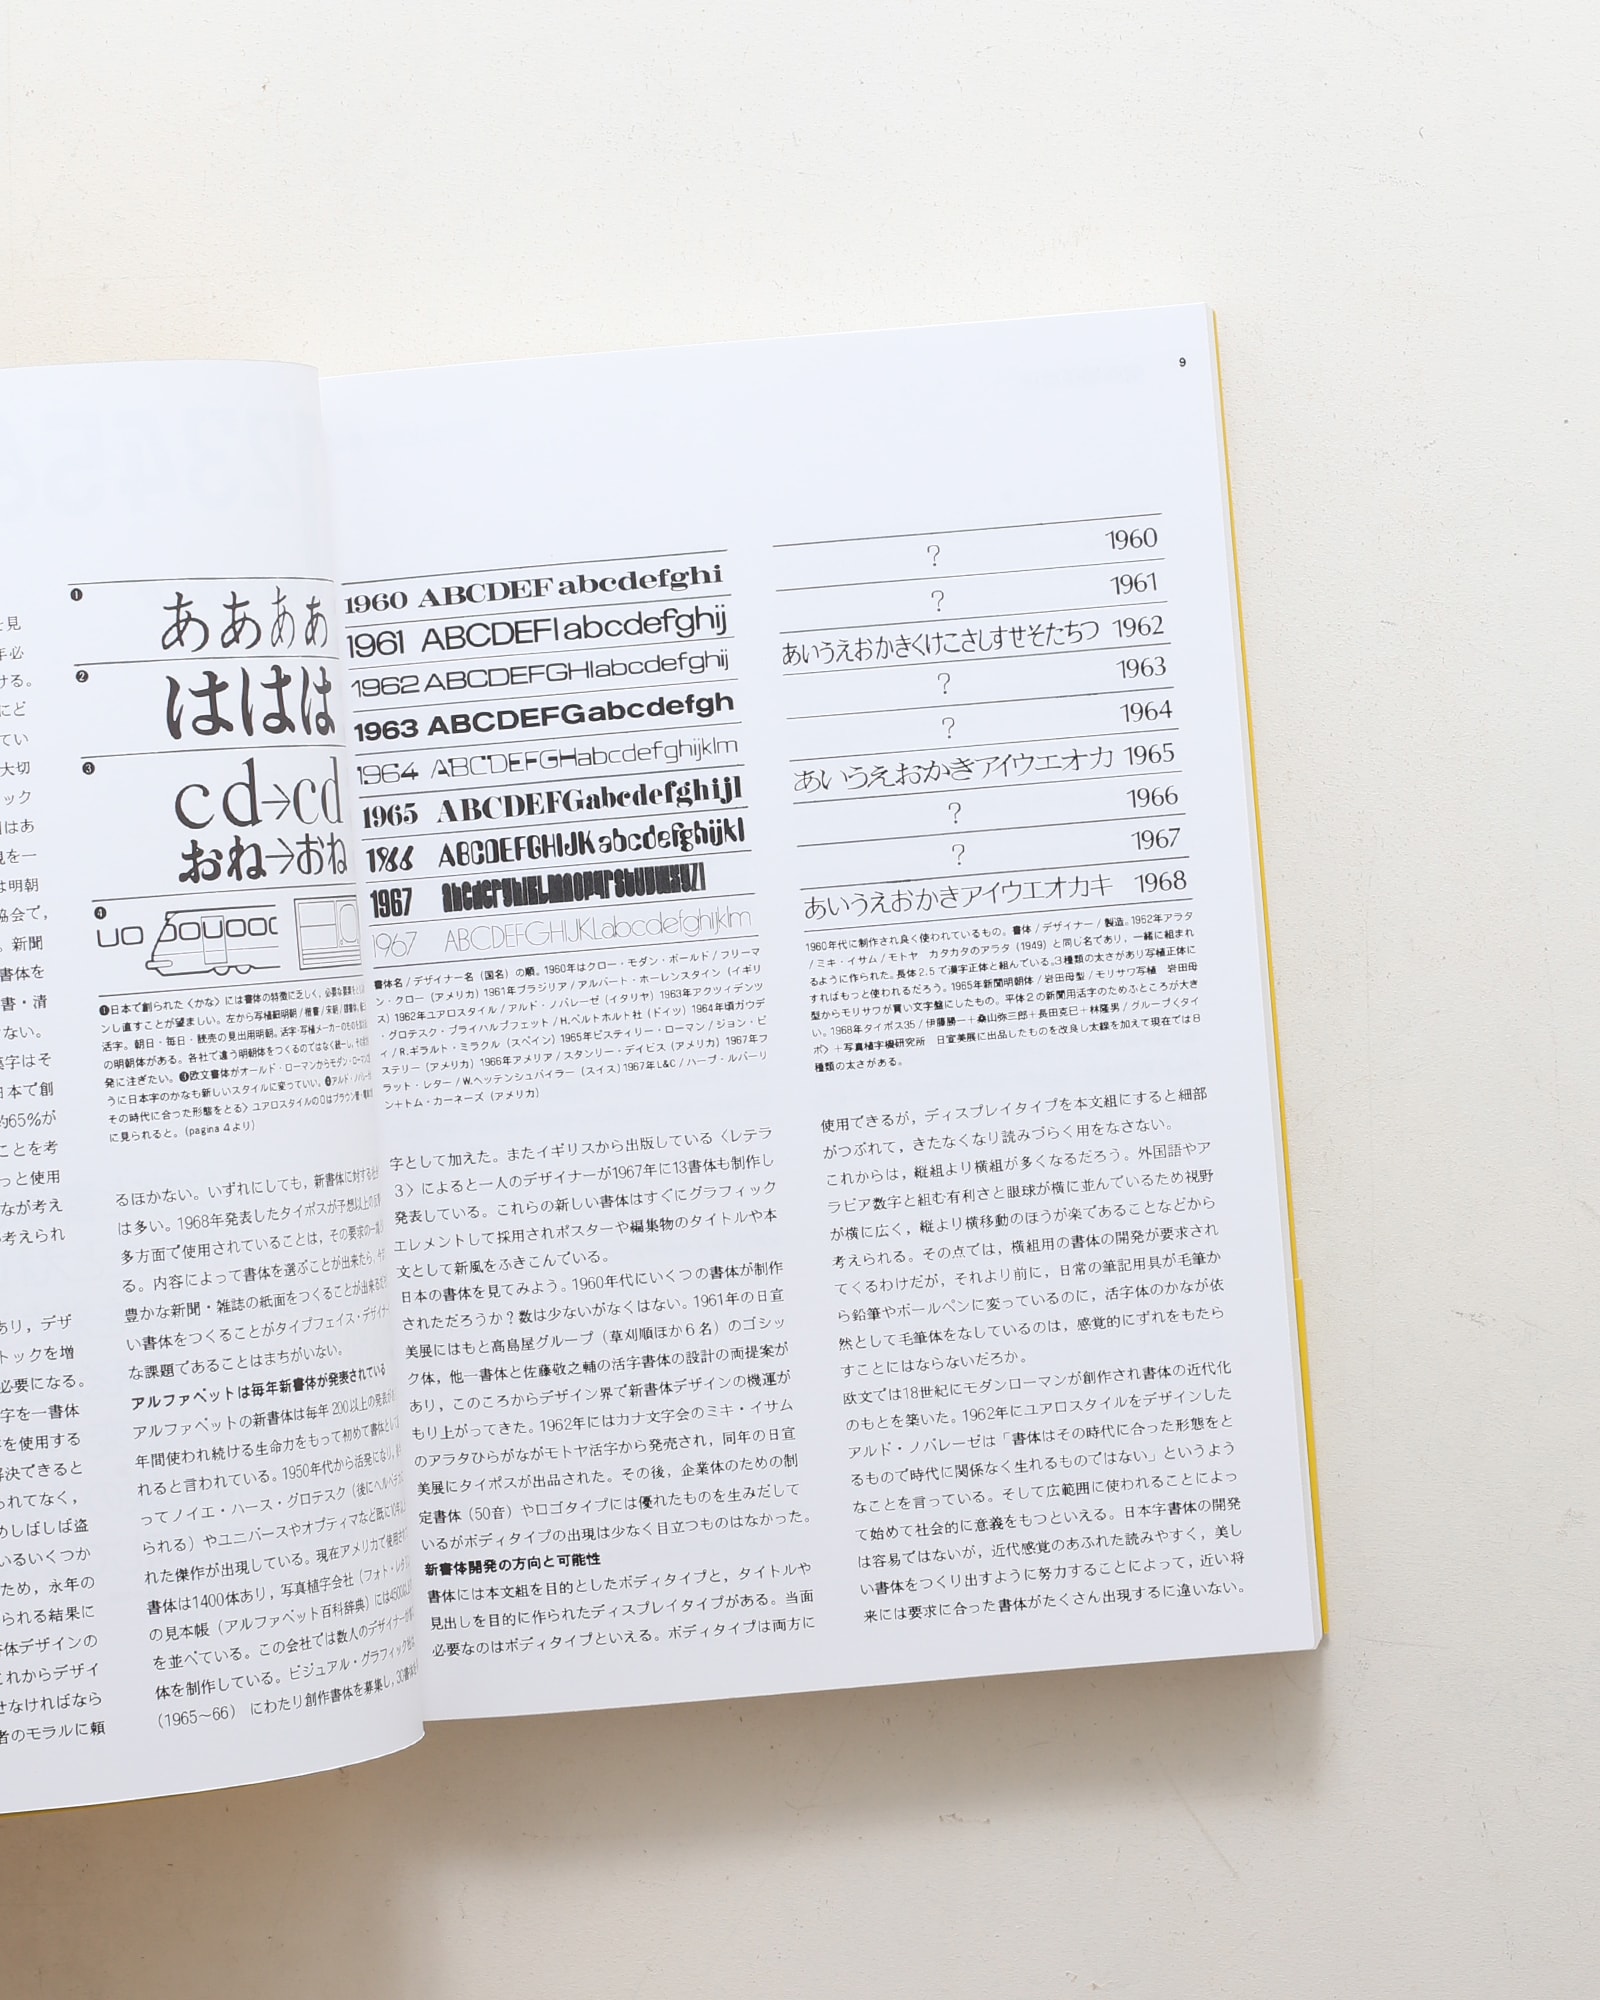 9
と見
年必
ける。
にど
てい
大切
ック
はあ
見を一
は明朝
協会で，
。新聞
書体を
書・清
さない。
漢字はそ
日本で創
約65%が
ことを考
っと使用
なが考え
考えられ
あり，デザ
トックを増
必要になる。
字を一書体
字を使用する
解決できると
られてなく，
めしばしば盗
いるいくつか
ため，永年の
られる結果に
書体デザインの
これからデザイ
せなければなら
者のモラルに頼
❶
ああああ
❷
ははは
❸
cd→cd
おね→おね
❹
uo
❶日本で創られた〈かな〉には書体の特徴に乏しく，
ンし直すことが望ましい。左から写植細明朝/楷書/宋朝/
活字。朝日・毎日・読売の見出用明朝。活字・写植メーカーのものを
の明朝体がある。各社で違う明朝体をつくるのではなく統一し，
発に注ぎたい。❸欧文書体がオールド・ローマンからモダン・ローマン
うに日本字のかなも新しいスタイルに変っていい。❹アルド・ノバレーゼ
その時代に合った形態をとる〉ユアロスタイルのOはブラウン管・電車
に見られると。(pagina 4より)
るほかない。いずれにしても，新書体に対する
は多い。1968年発表したタイポスが予想以上の
多方面で使用されていることは，その要求の一
る。内容によって書体を選ぶことが出来たら，
豊かな新聞・雑誌の紙面をつくることが出来る
い書体をつくることがタイプフェイス・デザイナー
な課題であることはまちがいない。
アルファベットは毎年新書体が発表されている
アルファベットの新書体は毎年200以上の発表が
年間使われ続ける生命力をもって初めて書体として
れると言われている。1950年代から活発になり，
ってノイエ・ハース・グロテスク（後にヘルベチカ
られる）やユニバースやオプティマなど既に
れた傑作が出現している。現在アメリカで使用
書体は1400体あり，写真植字会社（フォト・レタリング
の見本帳（アルファベット百科辞典）には4500
を並べている。この会社では数人のデザイナーが
体を制作している。ビジュアル・グラフィック
（1965〜66） にわたり創作書体を募集し，30書体を
1960 ABCDEF abcdefghi
1961 ABCDEFIabcdefghij
1962 ABCDEFGHIabcdefghij
1963 ABCDEFGabcdefgh
1964 ABCDEFGHabcdefghijklm
1965 ABCDEFGabcdefghijl
1966 ABCDEFGHIJKabcdefghijkl
1967
1967 ABCDEFGHIJKLabcdefghijklm
書体名/デザイナー名（国名）の順。1960年はクロー・モダン・ボールド/フリーマ
ン・クロー（アメリカ）1961年ブラジリア/アルバート・ホーレンスタイン（イギリ
ス）1962年ユアロスタイル/アルド・ノバレーゼ（イタリヤ）1963年アクツィデンツ
・グロテスク・ブライハルブフェット/H.ベルトホルト社（ドイツ）1964年頃ガウデ
ィ/R.ギラルト・ミラクル（スペイン）1965年ビスティリー・ローマン/ジョン・ビ
ステリー（アメリカ）1966年アメリア/スタンリー・デイビス（アメリカ）1967年フ
ラット・レター/W.ヘッテンシュバイラー（スイス）1967年L&C/ハーブ・ルバーリ
ン+トム・カーネーズ（アメリカ）
字として加えた。またイギリスから出版している〈レテラ
3〉によると一人のデザイナーが1967年に13書体も制作し
発表している。これらの新しい書体はすぐにグラフィック
エレメントして採用されポスターや編集物のタイトルや本
文として新風をふきこんでいる。
日本の書体を見てみよう。1960年代にいくつの書体が制作
されただろうか？数は少ないがなくはない。1961年の日宣
美展にはもと髙島屋グループ（草刈順ほか6名）のゴシッ
ク体，他一書体と佐藤敬之輔の活字書体の設計の両提案が
あり，このころからデザイン界で新書体デザインの機運が
もり上がってきた。1962年にはカナ文字会のミキ・イサム
のアラタひらがながモトヤ活字から発売され，同年の日宣
美展にタイポスが出品された。その後，企業体のための制
定書体（50音）やロゴタイプには優れたものを生みだして
いるがボディタイプの出現は少なく目立つものはなかった。
新書体開発の方向と可能性
書体には本文組を目的としたボディタイプと，タイトルや
見出しを目的に作られたディスプレイタイプがある。当面
必要なのはボディタイプといえる。ボディタイプは両方に
? 1960
? 1961
あいうえおかきくけこさしすせそたちつ 1962
? 1963
? 1964
あいうえおかきアイウエオカ 1965
? 1966
? 1967
あいうえおかきアイウエオカキ 1968
1960年代に制作され良く使われているもの。書体/デザイナー/製造。1962年アラタ
/ミキ・イサム/モトヤ カタカタのアラタ（1949）と同じ名であり，一緒に組まれ
るように作られた。長体2.5で漢字正体と組んでいる。3種類の太さがあり写植正体に
すればもっと使われるだろう。1965年新聞明朝体/岩田母型/モリサワ写植 岩田母
型からモリサワが買い文字盤にしたもの。平体2の新聞用活字のためふところが大き
い。1968年タイポス35/伊藤勝一+桑山弥三郎+長田克巳+林隆男/グループ〈タイ
ポ〉+写真植字機研究所 日宣美展に出品したものを改良し太線を加えて現在では8
種類の太さがある。
使用できるが，ディスプレイタイプを本文組にすると細部
がつぶれて，きたなくなり読みづらく用をなさない。
これからは，縦組より横組が多くなるだろう。外国語やア
ラビア数字と組む有利さと眼球が横に並んでいるため視野
が横に広く，縦より横移動のほうが楽であることなどから
考えられる。その点では，横組用の書体の開発が要求され
てくるわけだが，それより前に，日常の筆記用具が毛筆か
ら鉛筆やボールペンに変っているのに，活字体のかなが依
然として毛筆体をなしているのは，感覚的にずれをもたら
すことにはならないだろか。
欧文では18世紀にモダンローマンが創作され書体の近代化
のもとを築いた。1962年にユアロスタイルをデザインした
アルド・ノバレーゼは「書体はその時代に合った形態をと
るもので時代に関係なく生れるものではない」というよう
なことを言っている。そして広範囲に使われることによっ
て始めて社会的に意義をもつといえる。日本字書体の開発
は容易ではないが，近代感覚のあふれた読みやすく，美し
い書体をつくり出すように努力することによって，近い将
来には要求に合った書体がたくさん出現するに違いない。